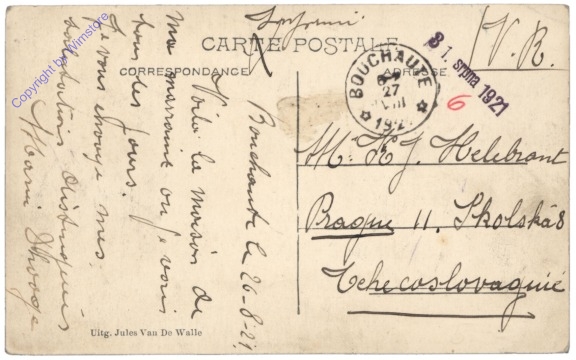 Imprimé
CARTE POSTALE
V. R.
CORRESPONDANCE
ADRESSE
BOUCHAUTE
27
VIII
192
31. srpna 1921
6
Bouchaute le 26-8-21.
Voilà la maison de
ma marraine ou je vais
tous les jours.
Je vous envoye mes
salutations distinguées
Marie
M. K. J. Helebrant
Prague II. Skolská 8
Tchecoslovaquie
Uitg. Jules Van De Walle
Copyright by Wimstore